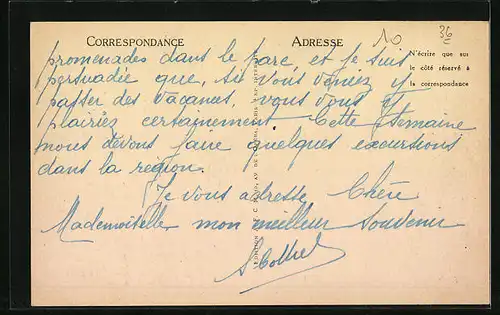 CORRESPONDANCE
ADRESSE
10
36
N'écrire que sur
le côté réservé à
la correspondance
promenades dans le parc, et je suis
persuadée que, si vous veniez y
passer des vacances, vous vous y
plairiez certainement. Cette semaine
nous devons faire quelques excursions
dans la région.
Je vous adresse, Chère
Mademoiselle, mon meilleur souvenir